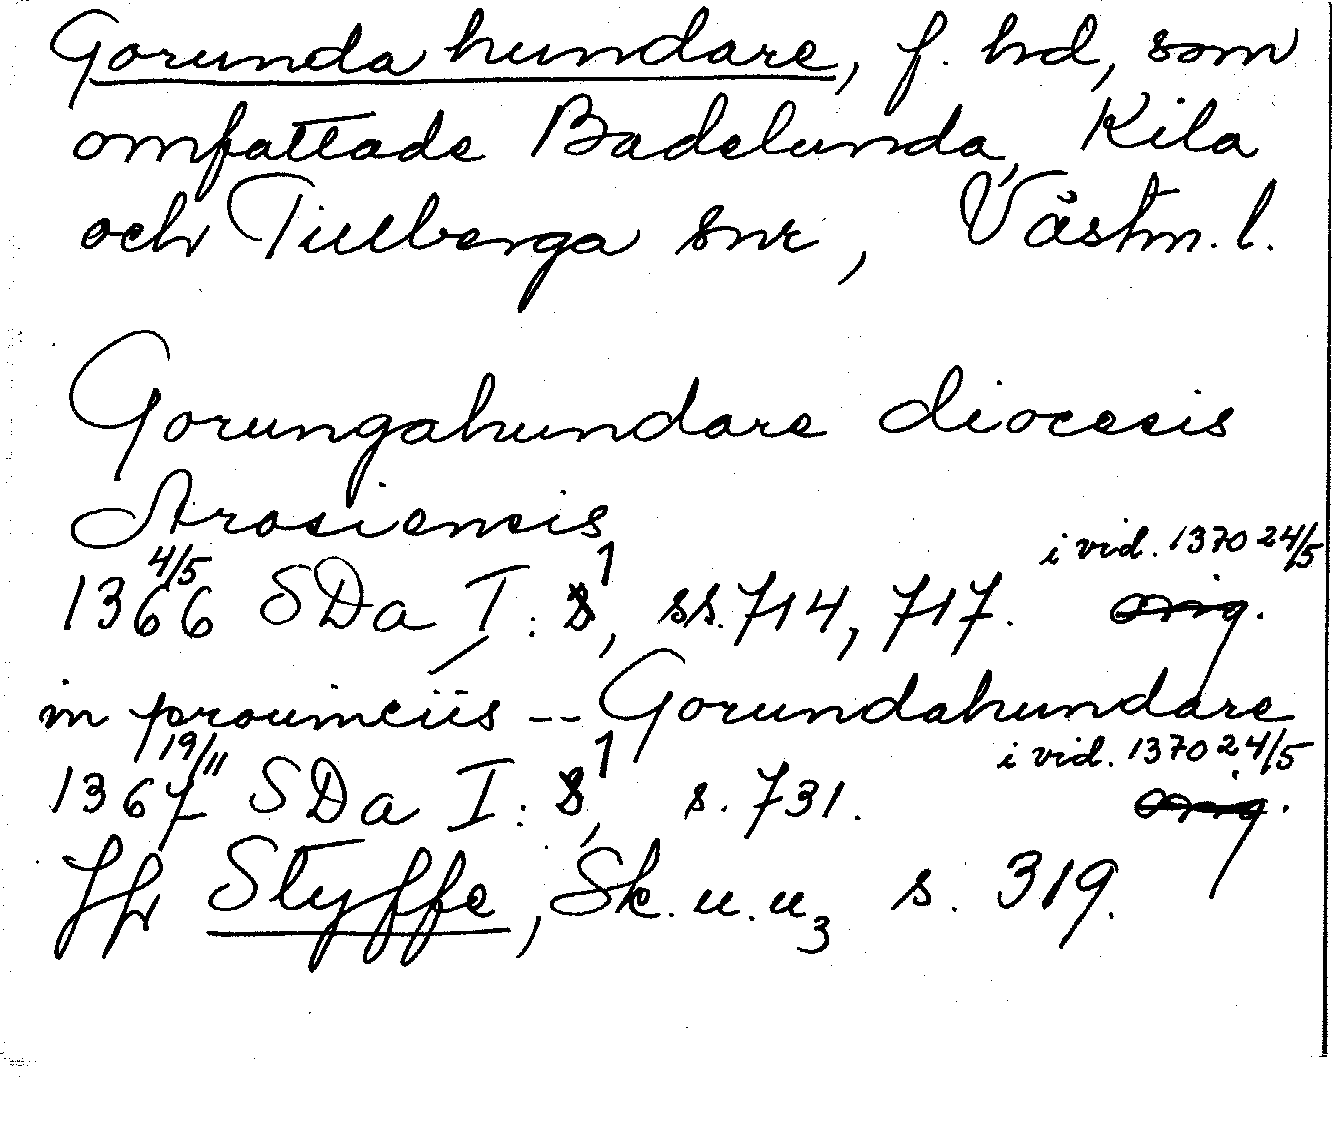 Gorunda hundare, f. hd, som
omfattade Badelunda, Kila
och Tillberga snr, Västm. l.
Gorungahundare diocesis
Arosiensis
i vid. 1370 24/5
1366 4/5 SDa I: 1, ss. 714, 717. orig.
in prouinciis -- Gorundahundare
i vid. 1370 24/5
1367 19/11 SDa I: 1, s. 731. orig.
Jfr Styffe, Sk. u. u3 s. 319.